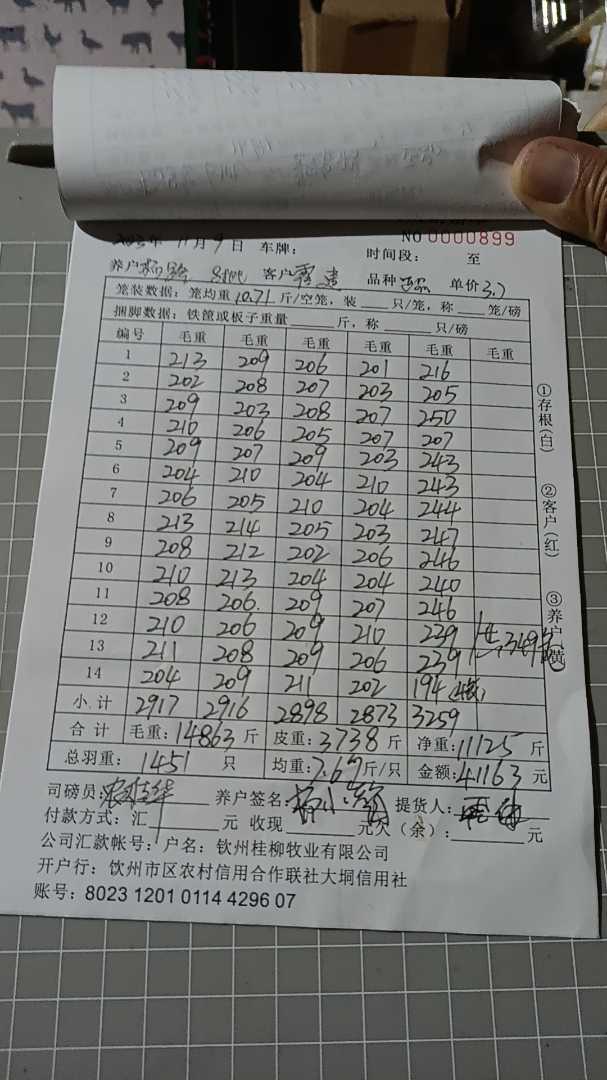 NO 0000899
2023年 11月9日 车牌: 时间段: 至
养户 客户 品种 单价3.7
笼装数据: 笼均重10.71斤/空笼, 装 只/笼, 称 笼/磅
捆脚数据: 铁筐或板子重量 斤, 称 只/磅
编号 毛重 毛重 毛重 毛重 毛重 毛重
1 213 209 206 201 216
2 202 208 207 203 205
3 209 203 208 207 250
4 210 206 205 207 207
5 209 207 209 203 243
6 204 210 204 210 243
7 206 205 210 204 244
8 213 214 205 203 247
9 208 212 202 206 246
10 210 213 204 204 240
11 208 206. 209 207 246
12 210 206 209 210 229
13 211 208 209 206 239 349
14 204 209 211 202 194
小计 2917 2916 2898 2873 3259
合计 毛重:14863斤 皮重:3738斤 净重:11125斤
总羽重: 1451 只 均重:7.67斤/只 金额:41163元
司磅员: 养户签名: 提货人:
付款方式: 汇 元 收现 元欠(余): 元
公司汇款帐号: 户名: 钦州桂柳牧业有限公司
开户行: 钦州市区农村信用合作联社大垌信用社
账号: 8023 1201 0114 4296 07
①存根(白)
②客户(红)
③养户(黄)